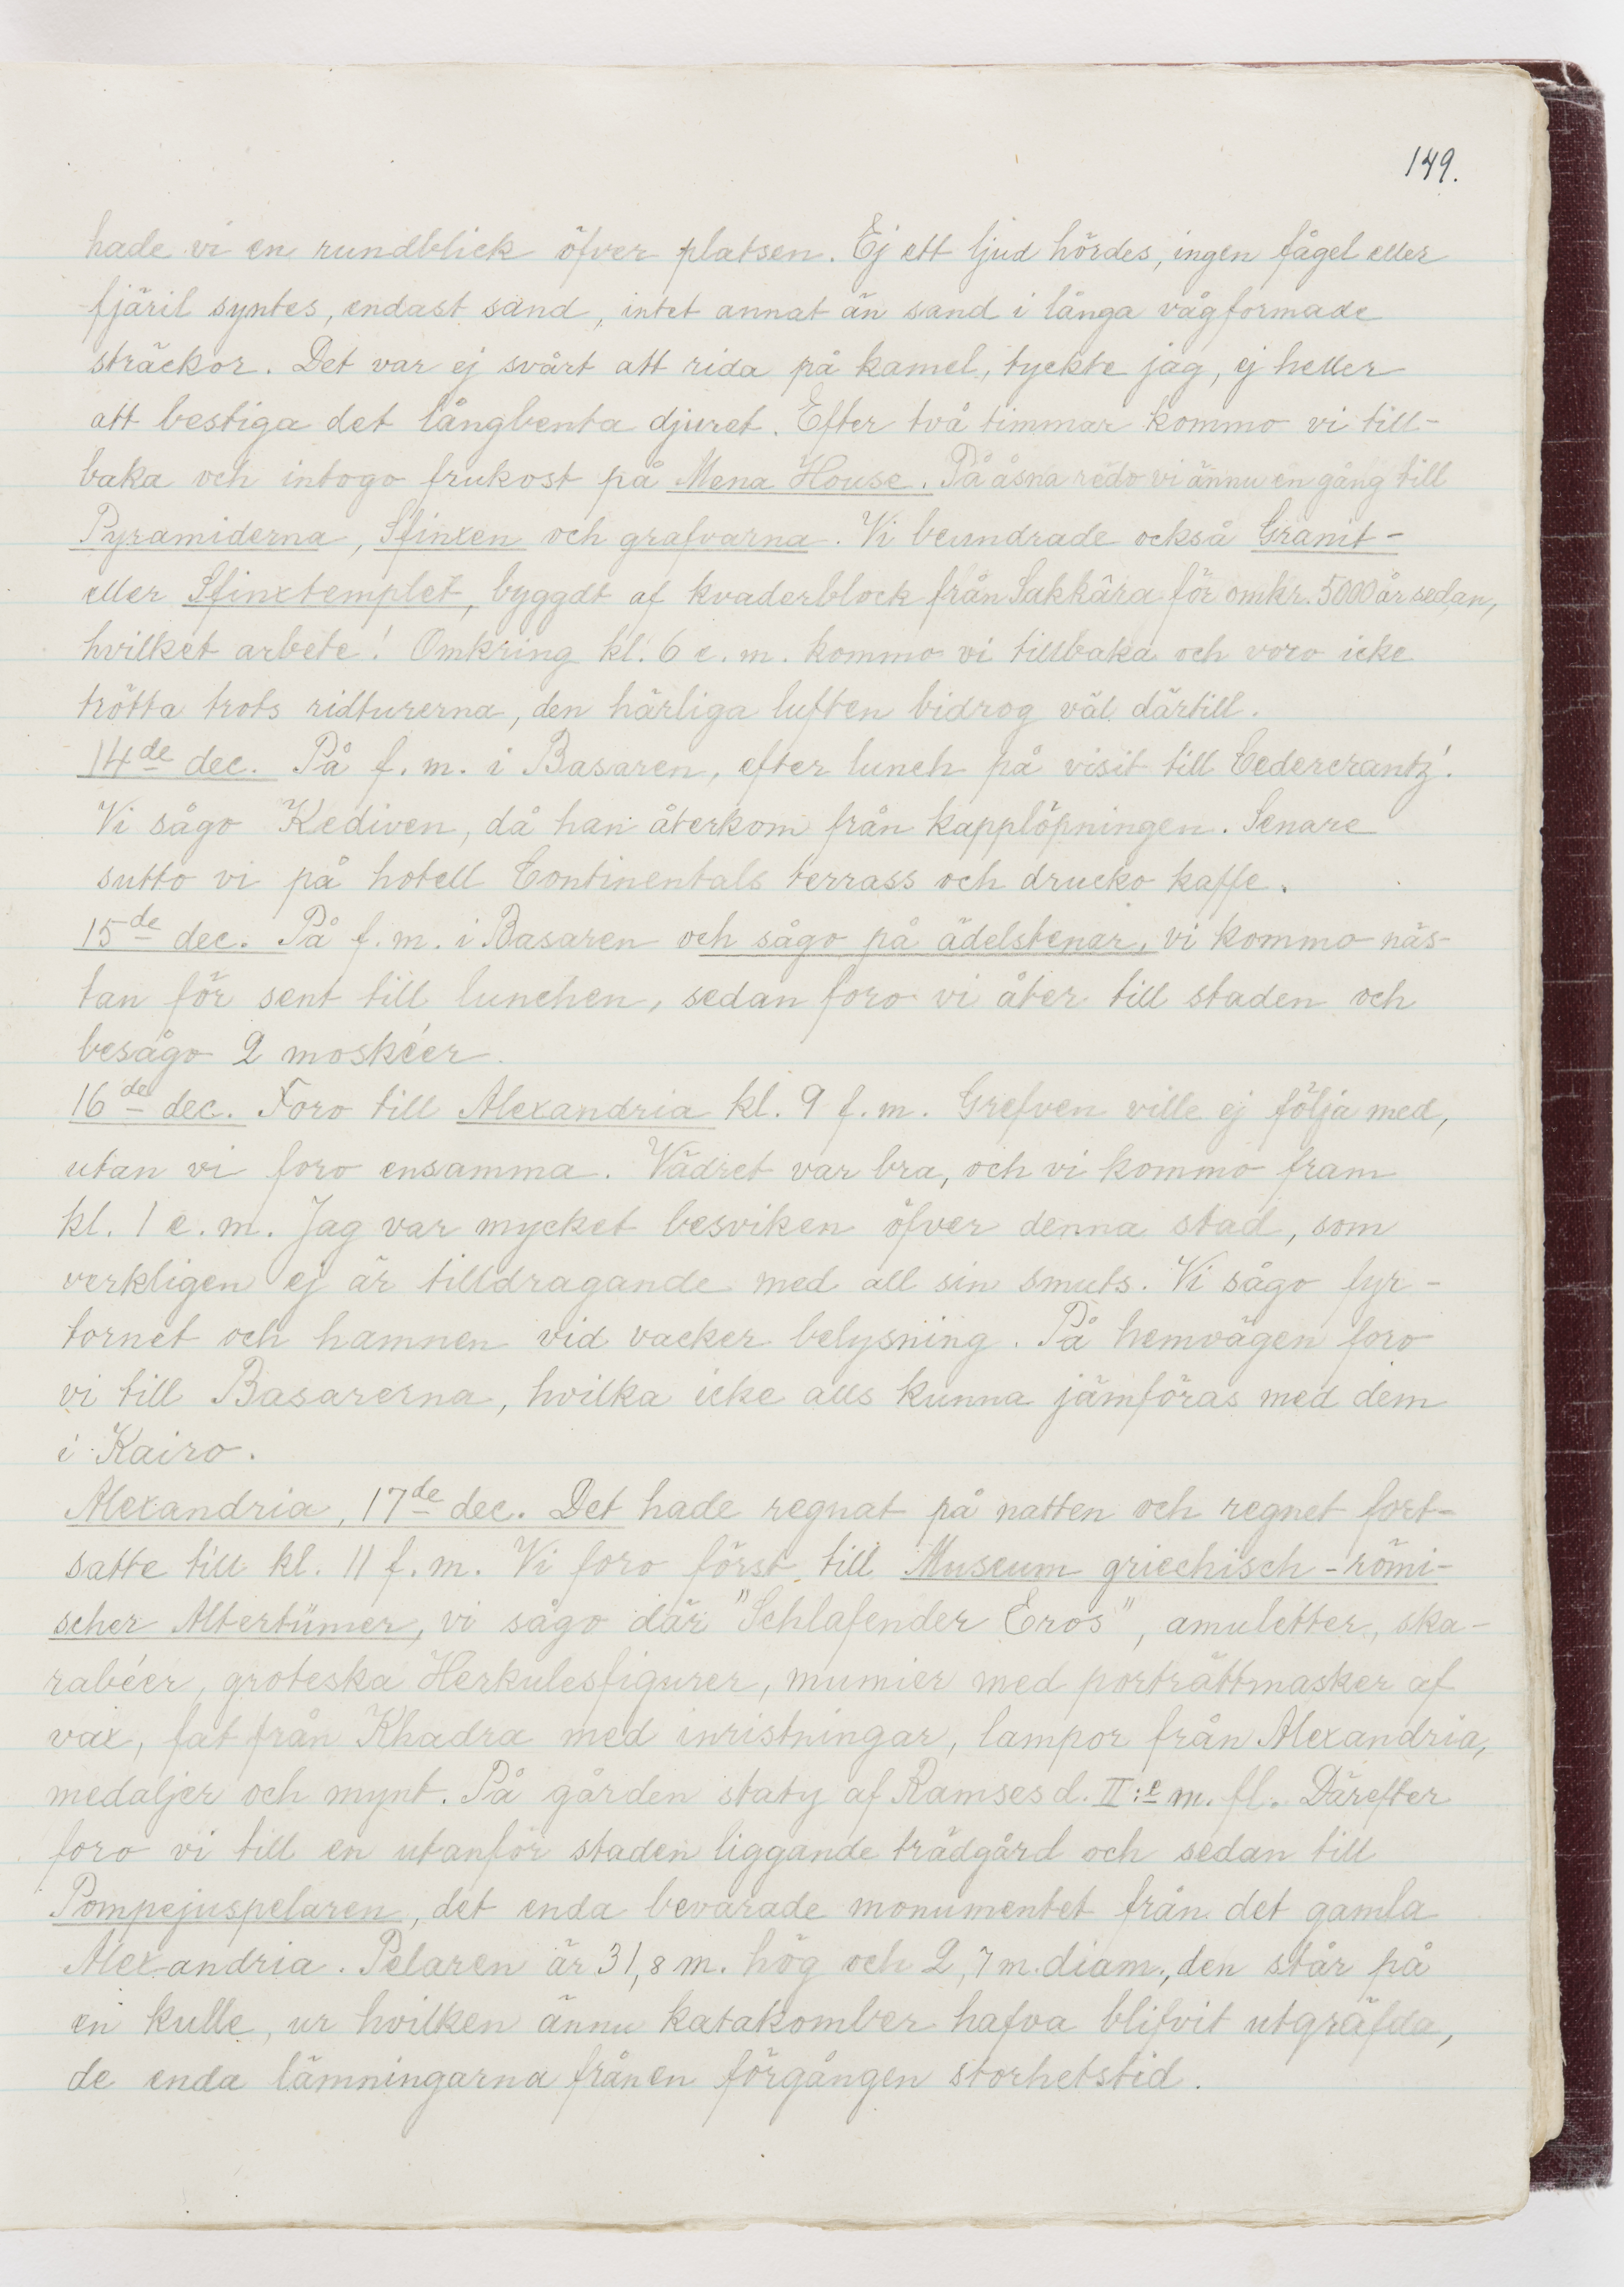 149.
hade vi en rundblick öfver platsen. Ej ett ljud hördes, ingen fågel eller
fjäril syntes, endast sand, intet annat än sand i långa vågformade
sträckor. Det var ej svårt att rida på kamel, tyckte jag, ej heller
att bestiga det långbenta djuret. Efter två timmar kommo vi till-
baka och intogo frukost på Mena House. På åsna redo vi ännu en gång till
Pyramiderna, Sfinxen och grafvarna. Vi beundrade också Granit-
eller Sfinxtemplet, byggdt af kvaderblock från Sakkâra för omkr. 5000 år sedan,
hvilket arbete! Omkring kl. 6 e. m. kommo vi tillbaka och voro icke
trötta trots ridturerna, den härliga luften bidrog väl därtill.
14de dec. På f. m. i Basaren, efter lunch på visit till Cedercrantz'.
Vi sågo Kediven, då han återkom från kapplöpningen. Senare
sutto vi på hotell Continentals terrass och drucko kaffe.
15de dec. På f. m. i Basaren och sågo på ädelstenar, vi kommo näs-
tan för sent till lunchen, sedan foro vi åter till staden och
besågo 2 moskéer.
16de dec. Foro till Alexandria kl. 9 f. m. Grefven ville ej följa med,
utan vi foro ensamma. Vädret var bra, och vi kommo fram
kl. 1 e. m. Jag var mycket besviken öfver denna stad, som
verkligen ej är tilldragande med all sin smuts. Vi sågo fyr-
tornet och hamnen vid vacker belysning. På hemvägen foro
vi till Basarerna, hvilka icke alls kunna jämföras med dem
i Kairo.
Alexandria, 17de dec. Det hade regnat på natten och regnet fort-
satte till kl. 11 f. m. Vi foro först till Museum griechisch-römi-
scher Altertümer, vi sågo där "Schlafender Eros", amuletter, ska-
rabéer, groteska Herkulesfigurer, mumier med porträttmasker af
vax, fat från Khadra med inristningar, lampor från Alexandria,
medaljer och mynt. På gården staty af Ramses d. II:e m. fl. Därefter
foro vi till en utanför staden liggande trädgård och sedan till
Pompejuspelaren, det enda bevarade monumentet från det gamla
Alexandria. Pelaren är 31,8 m. hög och 2,7 m. diam., den står på
en kulle, ur hvilken ännu katakomber hafva blifvit utgräfda,
de enda lämningarna från en förgången storhetstid.